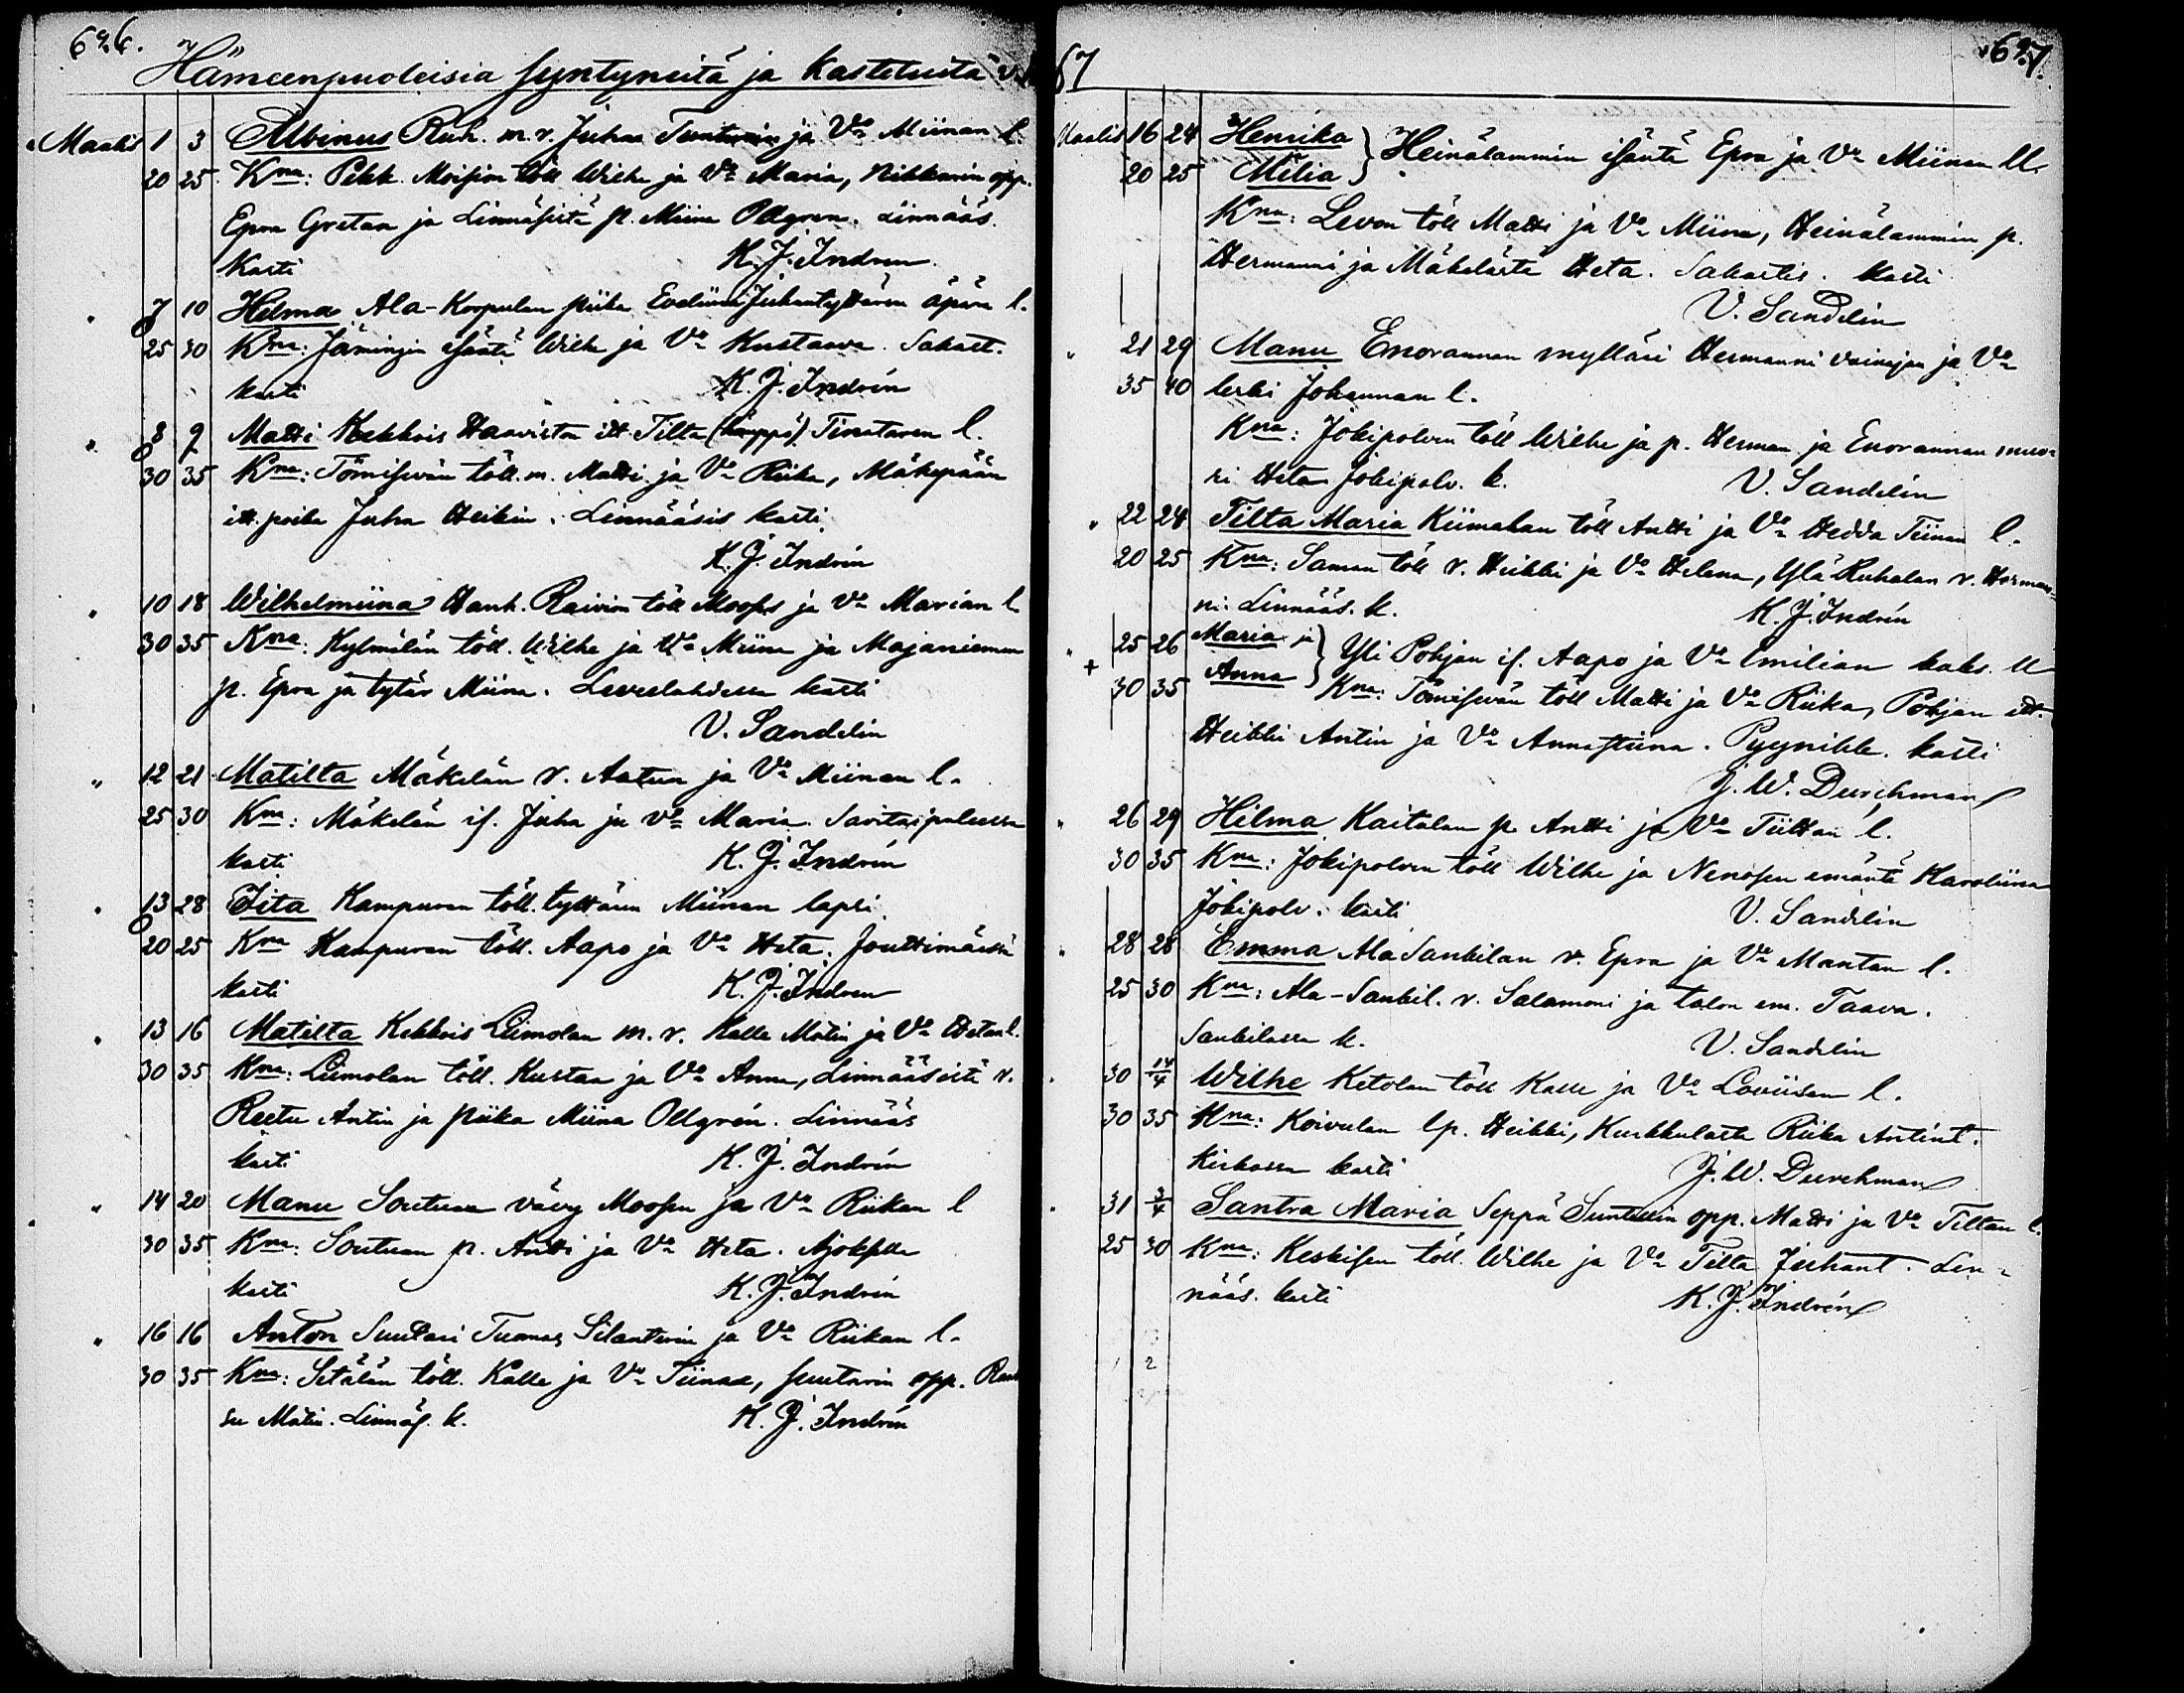 696.
Hämeenpuoleisia syntyneitä ja kastetuita v.
Maalis 1 3 Albinus Ruh. m. r. Juhan ja Vo Miinan l.
20 25 Kna: Pekk. Moision töll Wilhe ja Vo Maria, Nikkarin opp.
Epra Gretan ja Linnäsistä p. Miina Ollgren. Linnääs.
kasti K. J. Indren
" 7 10 Helma Ala-Korpulan piika Eveliina Juhantyttären äpärä l.
25 30 Kna: Jämingin isäntä Wilhe ja Vo Kustaava. Sakast.
kasti K. J. Indrén
" 8 9 Matti Kekkois Haavista itt. Tilta Tinataren l.
30 35 Kna: Törmiseván töll. m. Matti ja Vo Riika, Mäkepään
itt. poika Juha Heikin. Linnääsis kasti
K. J. Indrén
" 10 18 Wilhelmiina Hauh. Raivion töll Moops ja Vo Marian l.
30 35 Kna: Kylmälän töll. Wilhe ja Vo Miina ja Majaniemen
p. Epra ja tytär Miina. Leveelahdessa kasti
V. Sandelin
" 12 21 Matilta Mäkelän r. Aatun ja Vo Miinan l.
25 30 Kna: Mäkelän is. Juha ja Vo Maria. Savitaipaleessa
kasti K. J. Indrén
" 13 28 Iita Kampuran töll. tyttären Miinan lapsi
20 25 Kna Kampuran töll. Aapo ja Vo Heta. Jouttimäessä
kasti K. J. Indren
" 13 16 Matilta Kekkois Liimolan m. r. Kalle Matin ja Vo Hetan l.
30 35 Kna: Liimolan töll. Kustaa ja Vo Anna, Linnääsistä r.
Reetu Antin ja piika Miina Ollgrén. Linnääs
kasti K. J. Indrén
" 14 20 Manu Soutuan vävy Moosen ja Vo Riikan l
30 35 Kna: Soutuan p. Antti ja Vo Heta.
kasti K. J. Indrén
" 16 16 Anton Suutari Tuomas Silanterin ja Vo Riikan l.
30 35 Kna: Setälän töll. Kalle ja Vo Tiinaa, suutarin opp.
su Matin. Linnäs. k. K. J. Indrén
67
697.
Maalis 16 24 Henrika
20 25 Milia } Heinälammin isäntä Epra ja Vo Miinan ll.
Kna: Levon töll Matti ja Vo Miina, Heinälammin p.
Hermanni ja Mäkelästä Heta. Sakastis. kasti
V. Sandelin
" 21 29 Manu Enorannan mylläri Hermanni vainajan ja Vo
35 40 leski Johannan l.
Kna: Jokipolven töll Wilhe ja p. Herman ja Enorannan muo-
ri Heta Jokipolv. k. V. Sandelin
" 22 24 Tilta Maria Kiimahan töll Antti ja Vo Hedda Tiinan l.
20 25 Kna: Saman töll r. Heikki ja Vo Helena, Ylä Ruhalan r. Herman-
ni. Linnääs. k. K. J. Indrén
" 25 26 Maria ja
+ 30 35 Anna } Yli Pohjan is. Aapo ja Vo Emilian kaks. ll
Kna: Törmiseván töll Matti ja Vo Riika, Pohjan itt.
Heikki Antin ja Vo Annastiina. Pyynikk. kasti
J. W. Durchman
" 26 29 Hilma Kaitalan p. Antti ja Vo Tiittan l.
30 35 Kna: Jokipolven töll Wilhe ja Nenosen emäntä Karoliina
Jokipolv. kasti V. Sandelin
" 28 28 Emma Ala Sankilan r. Epra ja Vo Mantan l.
25 30 Kna: Ala-Sankil. r. Salamoni ja talon em. Taava.
Sankilassa k. V. Sandelin
" 30 14/4 Wilhe Ketolan töll Kalle ja Vo Loviisan l.
30 35 Kna: Koivulan lp. Heikki, Kurkkulasta Riika Antint.
Kirkossa kasti J. W. Durchman
" 31 3/4 Santra Maria Seppä Suntillin opp. Matti ja Vo Tiltan l.
25 30 Kna: Keskisen töll. Wilhe ja Vo Tilta Juhant. Lin-
nääs. kasti K. J. Indrén
2